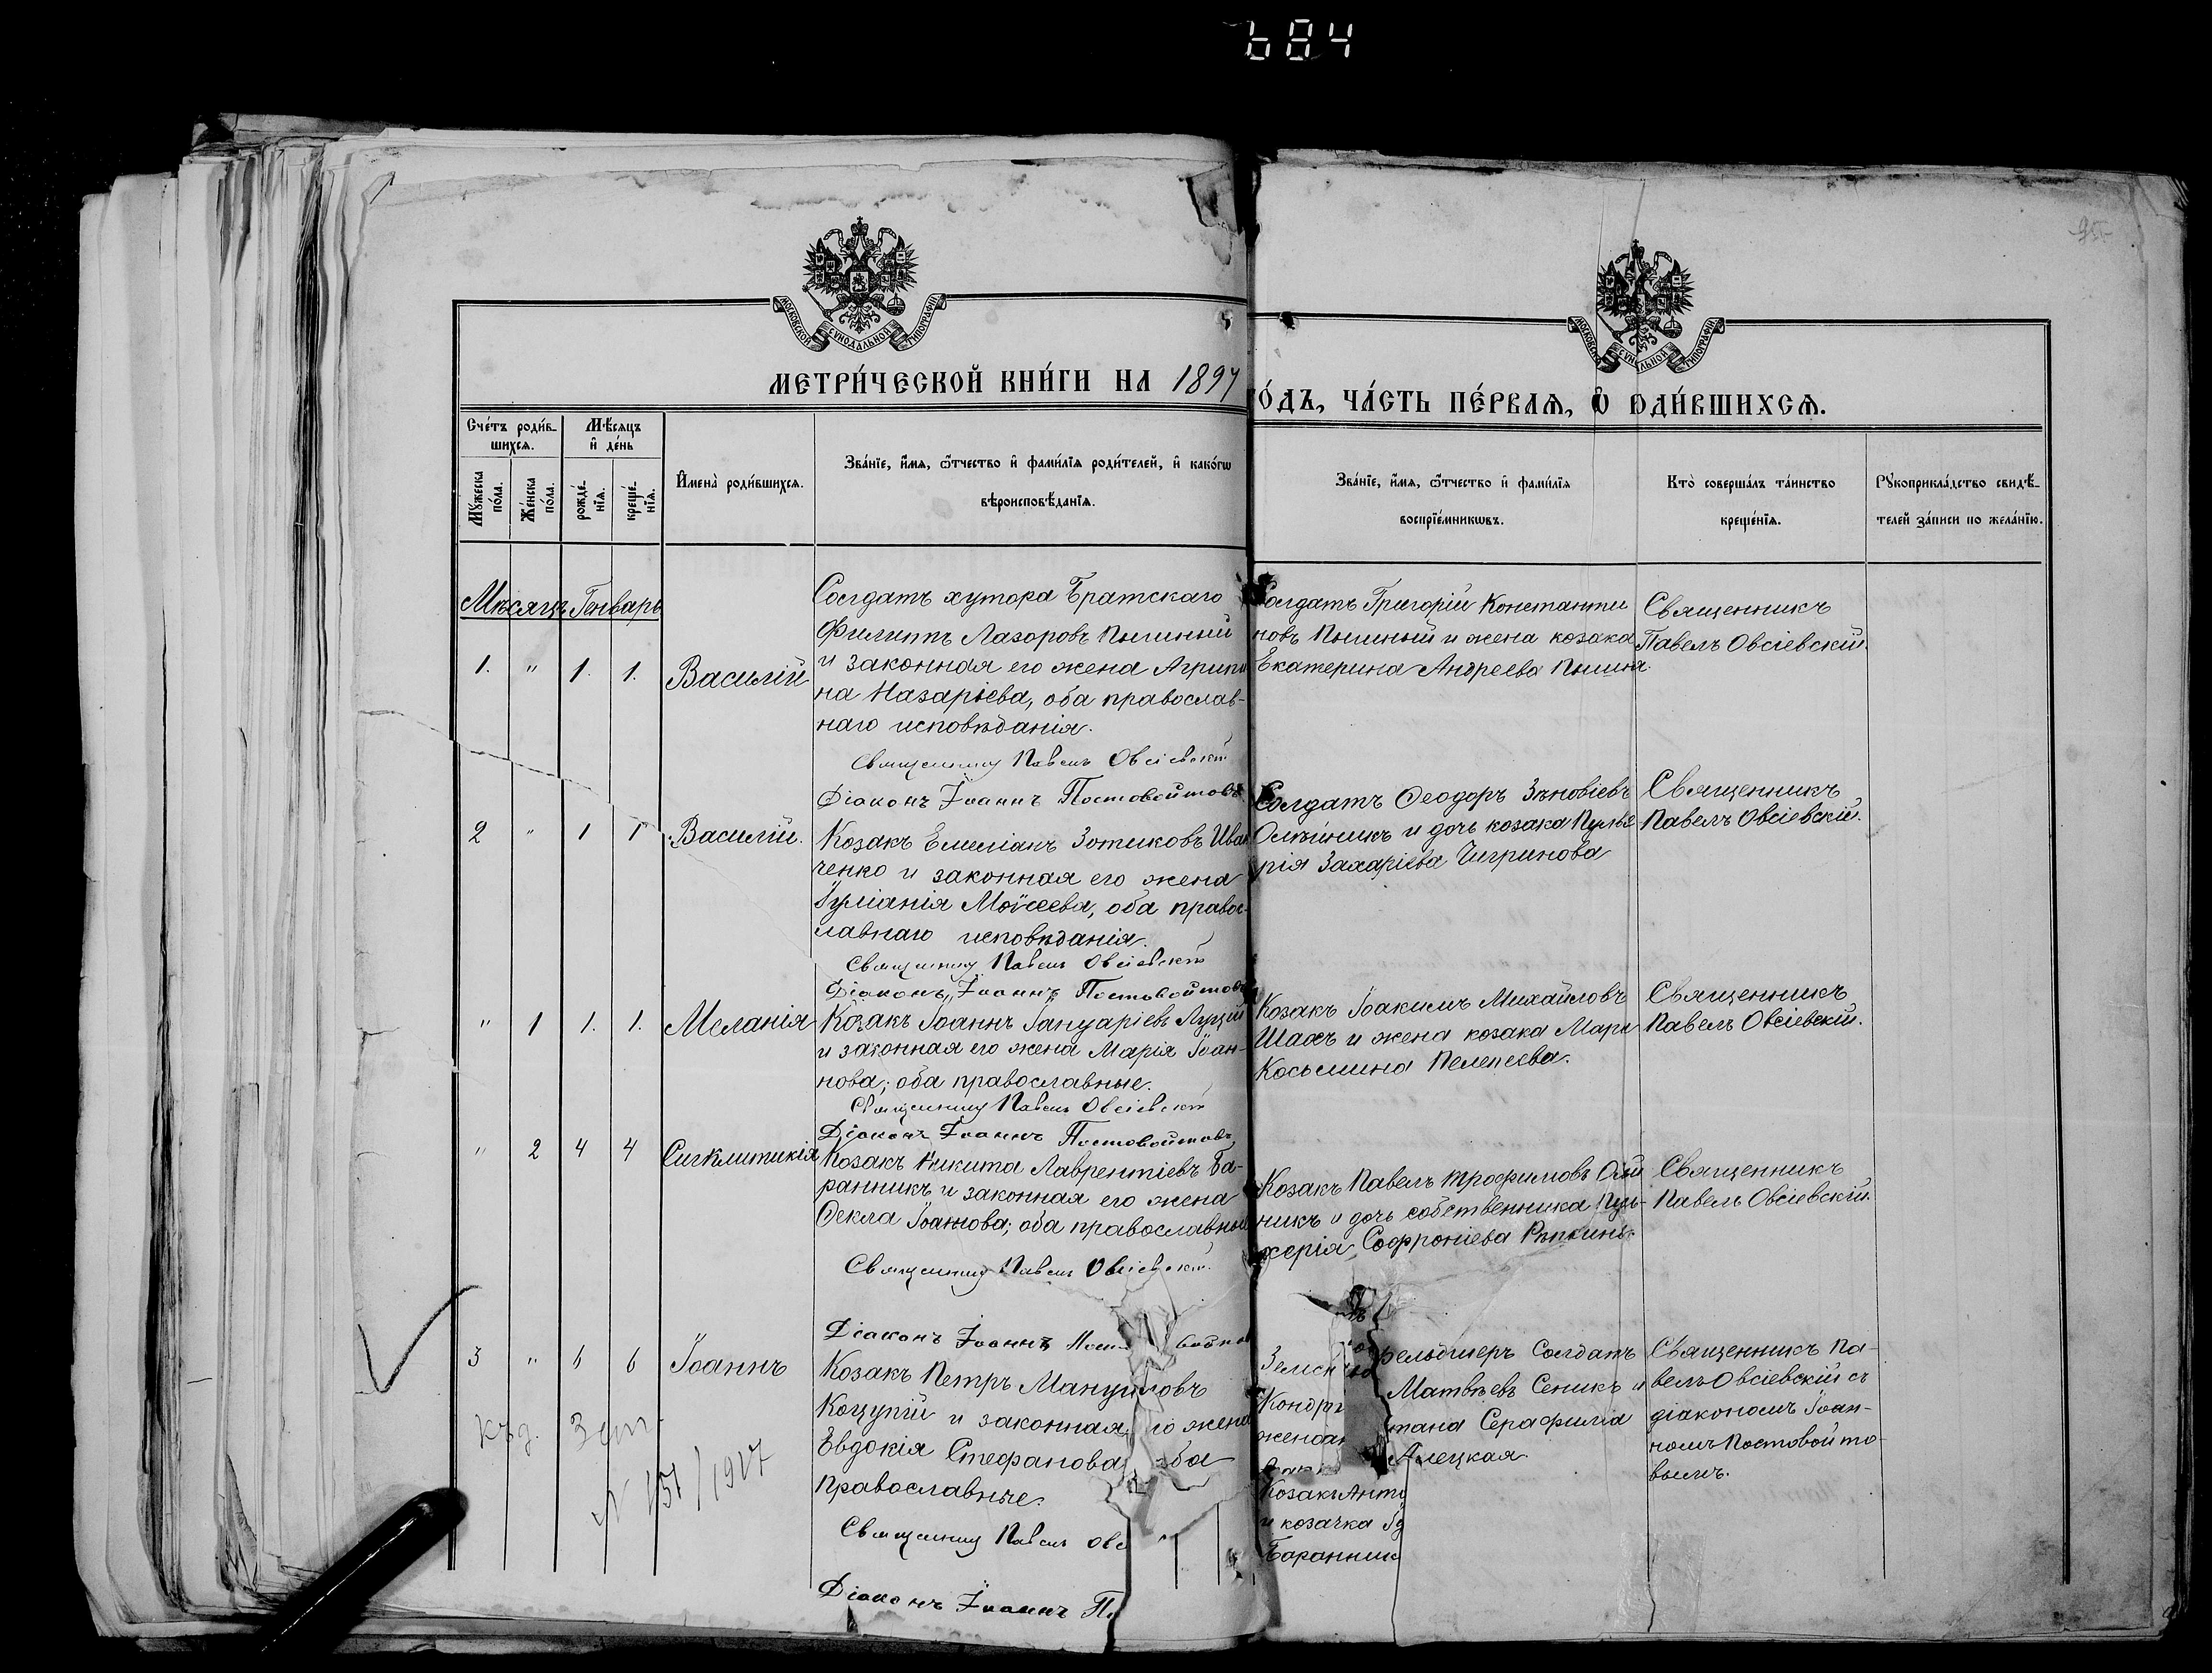 684
95
МОСКОВСКОЙ СУНОДАЛЬНОЙ ТИПОГРАФІИ
МОСКОВСКОЙ СУНОДАЛЬНОЙ ТИПОГРАФІИ
МЕТРИ́ЧЕСКОЙ КНИ́ГИ НА 1897
ГО́ДЪ, ЧА́СТЬ ПЕ́РВАЯ, Ѡ РОДИ́ВШИХСЯ.
Сче́тъ роди́в-
шихся.
Мѣ́сяцъ
и де́нь
Мꙋ́жеска
по́ла.
Же́нска
по́ла.
рожде́-
нїя.
креще́-
нїя.
Имена̀ роди́вшихся.
Зва́нїе, и́мя, ѻ́тчество и фами́лїя роди́телей, и како́гѡ
вѣроисповѣ́данїя.
Зва́нїе, и́мя, ѻ́тчество и фами́лїя
воспрїе́мникѡвъ.
Кто̀ соверша́лъ та́инство
креще́нїя.
Рꙋкоприкла́дство свидѣ́-
телей за́писи по жела́нїю.
Мѣсяцъ Генварь
1. " 1. 1. Василій
Солдатъ хутора Братскаго
Филиппъ Лазоровъ Пышный
и законная его жена Агрипи
на Назаріева, оба православ-
наго исповѣданія.
Священникъ Павелъ Овсіевскій
Діаконъ Іоаннъ Постовойтовъ
Солдатъ Григорій Константи
новъ Пышный и жена козака
Екатерина Андреева Пышна.
Священникъ
Павелъ Овсіевскій.
2 " 1 1 Василій.
Козакъ Емеліанъ Зотиковъ Иван
ченко и законная его жена
Іуліанія Моѵсеева, оба право-
славнаго исповѣданія.
Священникъ Павелъ Овсіевскій
Діаконъ Іоаннъ Постовойтовъ
Солдатъ Ѳеодоръ Зѣновіевъ
Олѣйникъ и дочь козака Пулхе
рія Захаріева Чигринова
Священникъ
Павелъ Овсіевскій.
" 1 1. 1. Меланія
Козакъ Іоаннъ Іануаріевъ Луцій
и законная его жена Марія Іоан-
нова; оба православные.
Священникъ Павелъ Овсіевскій
Діаконъ Іоаннъ Постовойтовъ
Козакъ Іоакимъ Михайловъ
Шахъ и жена козака Марі
Косьмина Пелепеева.
Священникъ
Павелъ Овсіевскій.
" 2 4 4 Сигклитикія
Козакъ Никита Лаврентіевъ Ба-
ранникъ и законная его жена
Ѳекла Іоаннова; оба православные
Священникъ Павелъ Овсіевскій.
Діаконъ Іоаннъ Пост войто
Козакъ Павелъ Трофимовъ Олѣй
никъ и дочь собственника Пул-
херія Софроніева Рѣпкина.
Священникъ
Павелъ Овсіевскій.
3 " 6 6 Іоаннъ
Козакъ Петръ Мануиловъ
Коцупій и законная его жена
Евдокія Стефанова, оба
православные.
Священникъ Павелъ Овс
Діаконъ Іоаннъ По
Земск фельдшеръ Солдатъ
Кондр Матвѣевъ Сеникъ и
жена тана Серафима
Алецкая.
Козакъ Анто
и козачка
Баранник
Священникъ Па-
велъ Овсіевскій съ
діакономъ Іоан-
номъ Постовойто-
вымъ.
N 151/1917